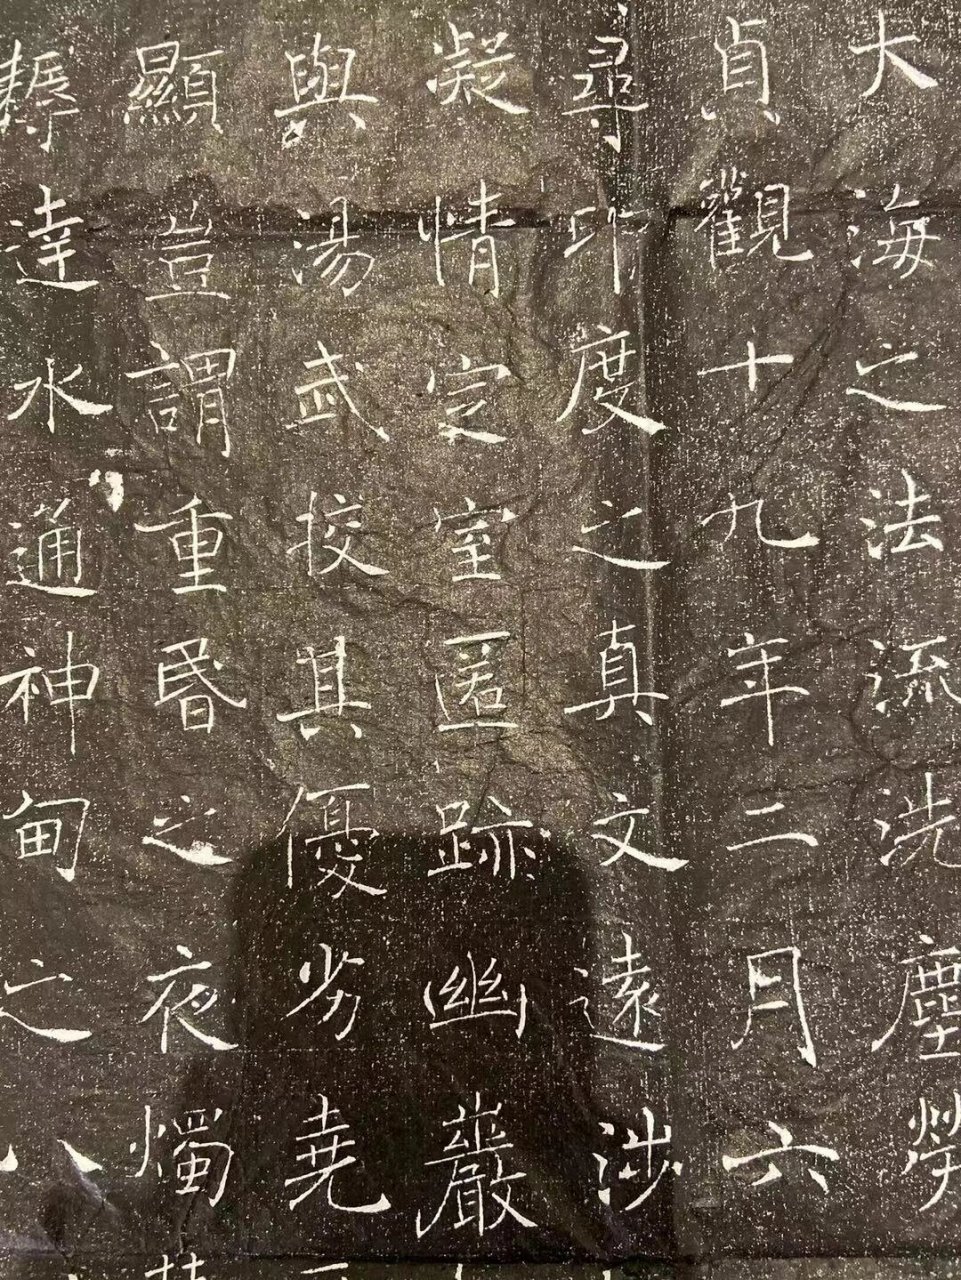 大海之法流洗塵勞
貞觀十九年二月六
尋印度之真文遠涉
凝情定室匿跡幽巖
與湯武挍其優劣堯
顯豈謂重昬之夜燭
耨達水通神甸之八